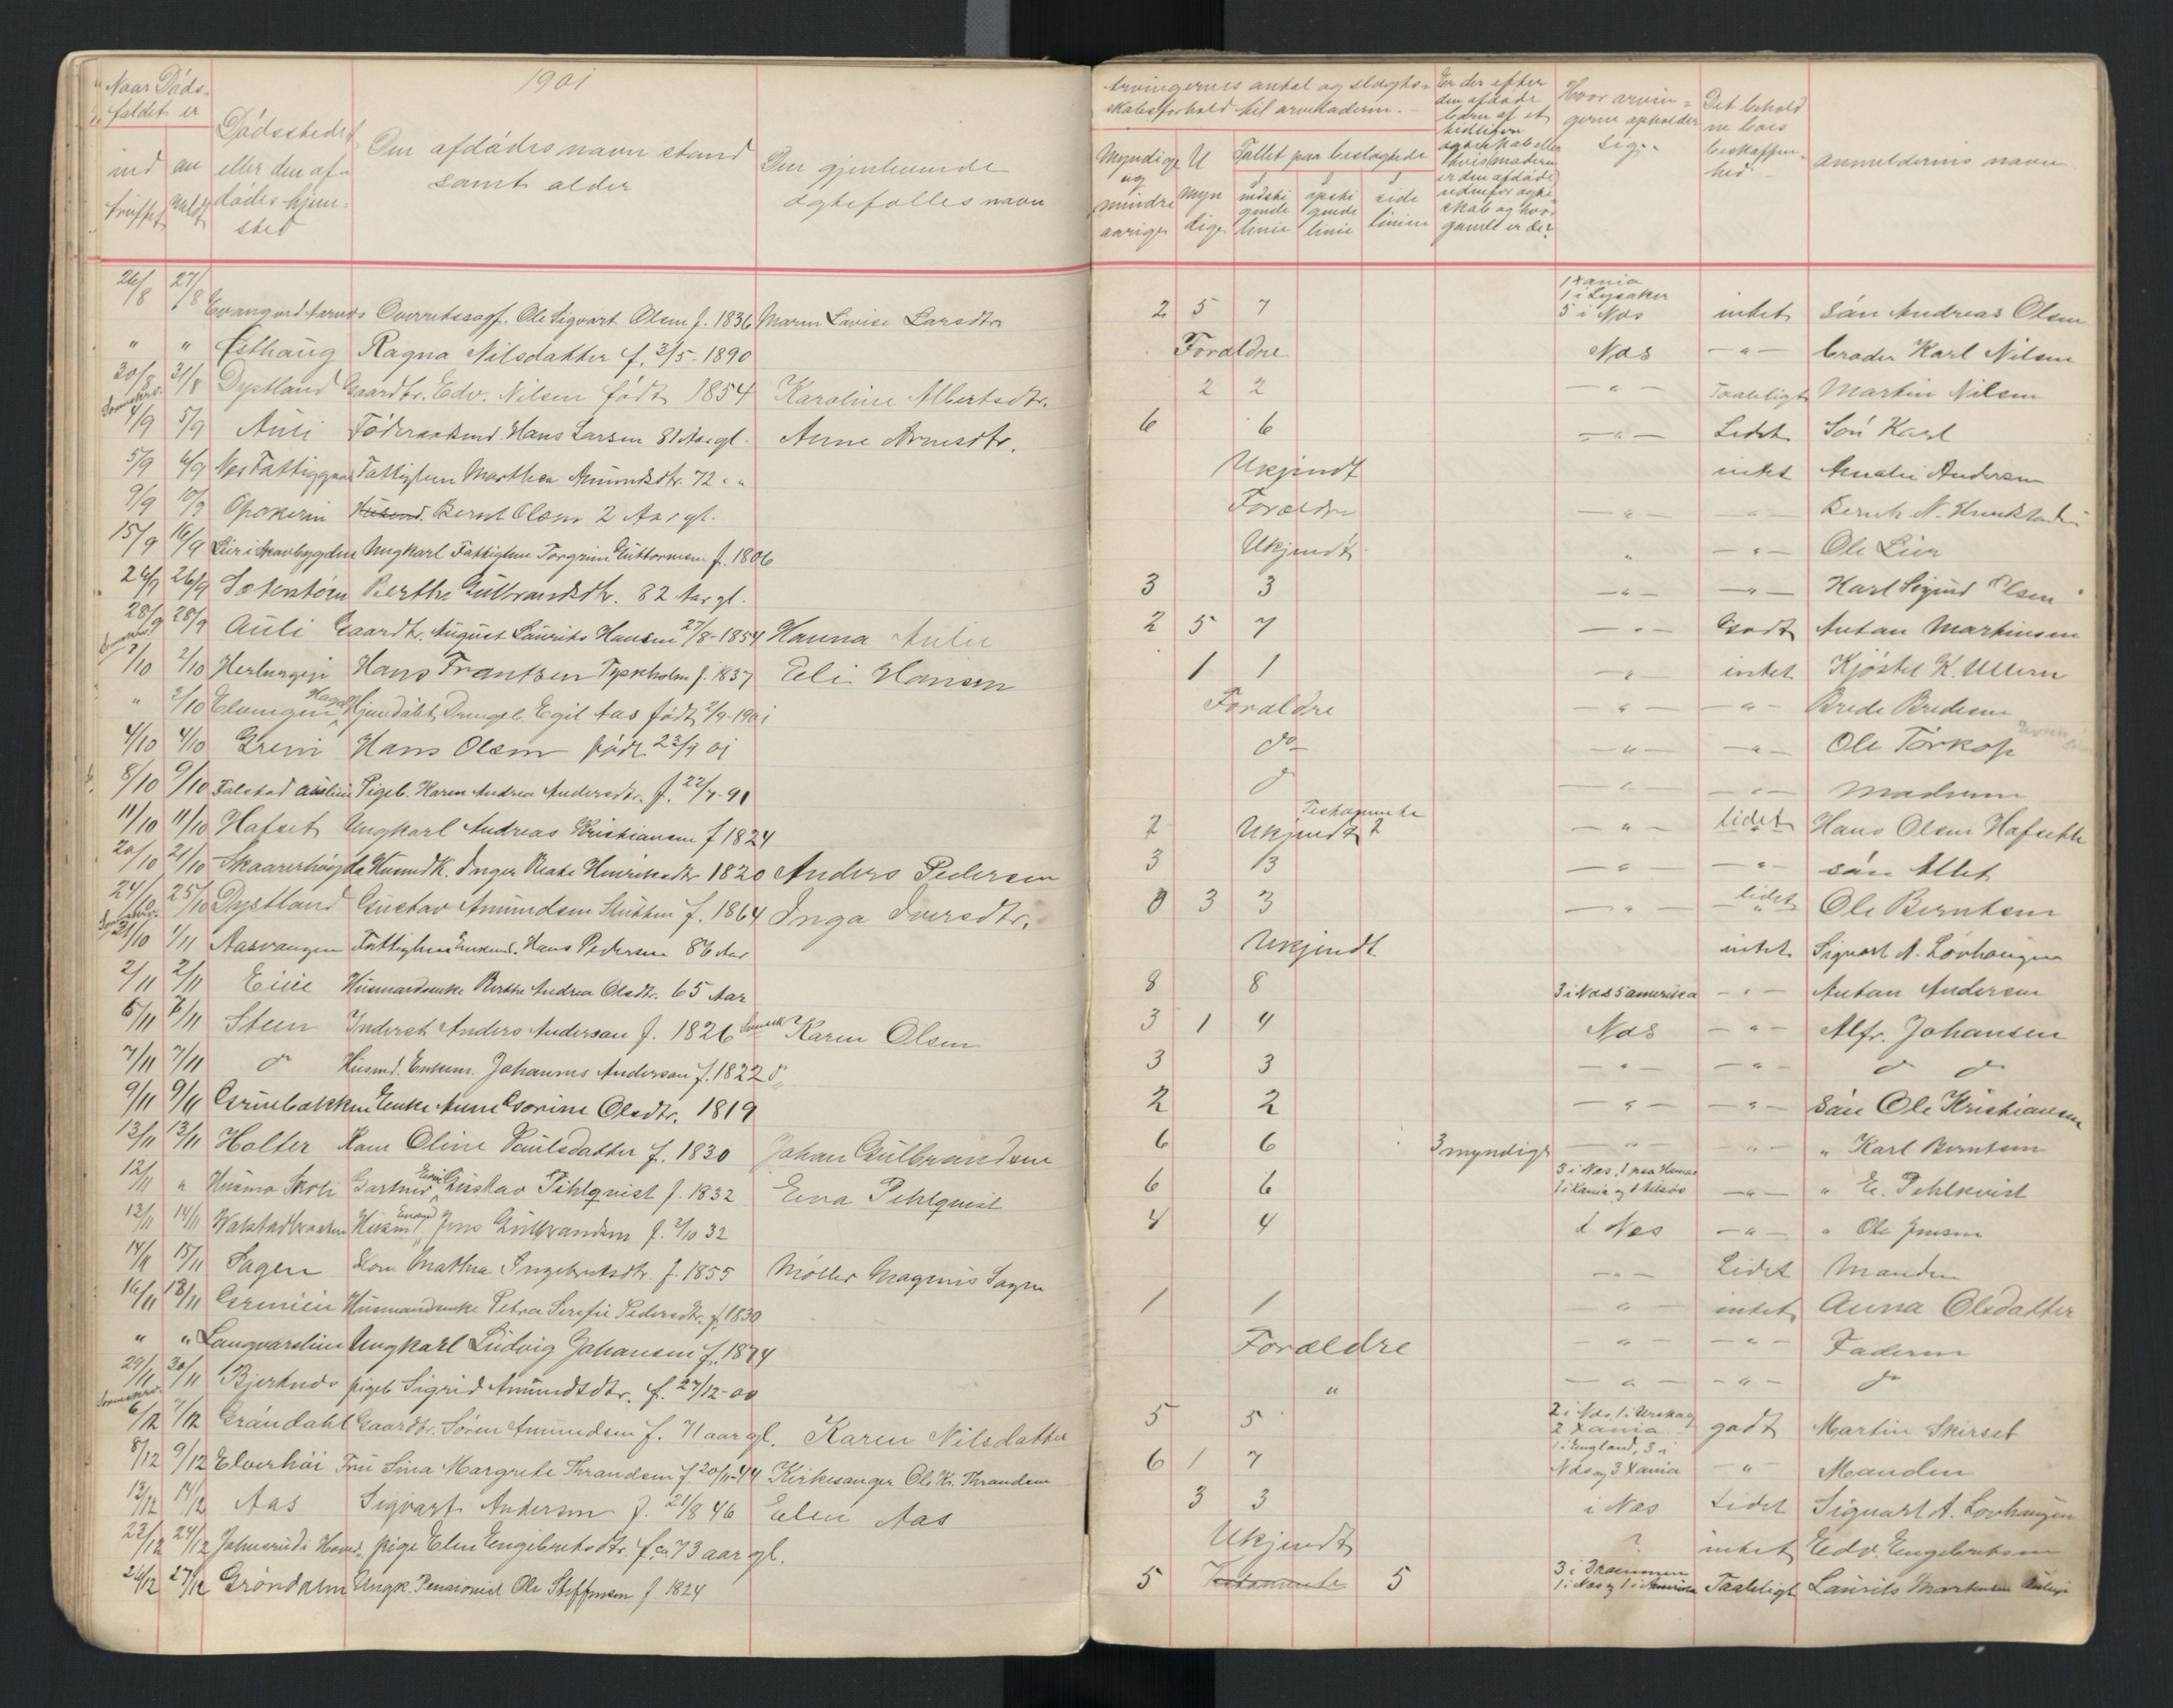 1901
Naar Døds-
faldet er
ind an
truffet meldt
Dødsstedet
eller den af-
dødes hjem-
sted
Den afdødes navn stand
samt alder
Den gjenlevende
ægtefælles navn
Arvingernes antal og slægts-
skabsforhold til arveladeren.
Myndige og mindreaarige
Umyndige
Tallet paa beslægtede
nedsti gende linie
opsti gende linie
side linien
Er der efter
den afdøde
børn af et
tidligere
ægteskab eller
Hvor arvin-
gerne opholder
sig.
Det behold
ne boes
beskaffen-
hed
Anmelderens navn
26/8 27/8 Ole Sigvart Olsen f. 1836 Maren Lovise Larsdtr 2 5 7 1 Xania 1 i Lysaker 5 i Nes intet Søn Andreas Olsen
" " Ragna Nilsdatter f. 3/5-1890 Forældre Næs — " — broder Karl Nilsen
30/8 31/8 Dystland Gaardbr. Edv. Nilsen født 1854 Karoline Albertsdtr. 2 2 — " — Taaleligt Martin Nilsen
4/9 5/9 Auli Føderaadsmd. Hans Larsen 81 Aar gl. Anne Arnesdtr. 6 6 — " — Lidet Søn Karl
5/9 6/9 Nes Fattiggaard Fattiglem Marthea Amundsdtr. 72 " " Ukjendt intet Amalie Andersen
9/9 10/9 Opakerin Husmd. Bernt Olsen 2 Aar gl. Forældre — " — " Bernh. N. Hunstad
15/9 16/9 Lier i Skovbygden Ungkarl Fattiglem Torgrim Guttormsen f. 1806 Ukjendt " — " — Ole Lier
24/9 26/9 Berthe Gulbrandsdtr. 82 Aar gl. 3 3 — " — — " — Karl Sigurd Olsen
28/9 28/9 Auli Gaardbr. August Laurits Hansen 27/8-1854 Hanna Aulie 2 5 7 — " — Godt Anton Martinsen
2/10 Herbergein Hans Frantzen Tyskholm f. 1837 Eli Hansen 1 1 — " — intet Kjøstel K. Ullern
" 3/10 Drengeb. Egil Aas født 2/9-1901 Forældre — " — — " — Brede Bredesen
4/10 4/10 Greni Hans Olsen født 23/9 01 do — " — — " — Ole Torkop
8/10 9/10 Falstad aulie Pigeb. Karen Andrea Andersdtr. f. 22/7-91 do — " — — " — Moderen
11/10 11/10 Hafset Ungkarl Andreas Kristiansen f 1824 ? Ukjendt ? Testamente — " — lidet Hans Olsen Hafsette
20/10 21/10 Skaarerhøgda Husmdk. Inger Beate Henriksdtr 1820 Anders Pedersen 3 13 — " — — " — søn Allet
24/10 25/10 Dystland Gustav Amundsen Slutten f. 1864 Inga Iversdtr. 0 3 3 — " — lidet Ole Berntsen
31/10 1/11 Aasvangen Fattiglem Enkemd. Hans Pedersen 86 Aar Ukjendt intet Sigvart A. Løvhaugen
2/11 2/11 Eiie Husmandsenke Berthe Andrea Olsdtr. 65 Aar 8 8 3 i Næs 5 amerika — " — Anton Andersen
6/11 Steen Inderst Anders Anderson f. 1826 Karen Olsen 3 1 4 Næs — " — Alfr. Johansen
7/11 7/11 do Husmd. Enkem. Johannes Anderson f. 1822 3 3 — " — — " — do do
9/11 9/11 Grinebakken Enke Anne Gorine Olsdtr. 1819 2 2 — " — — " — Søn Ole Kristiansen
13/11 13/11 Holter Kone Oline Paulsdatter f. 1830 Johan Gulbrandsen 6 6 3 myndige — " — " — " Karl Berntsen
12/11 " Husmo Skole Gartner Gustav Pihlqvist f. 1832 Eva Pihlquist 6 6 3 i Nes, 1 paa Hamar 1 i Xania — " — " E. Pihlkvist
13/11 14/11 Walstadbraaten Husmd. Enkemd Jens Gulbrandsen f. 2/10 32 4 4 i Nes — " — " Ole Jensen
14/11 15/11 Sagen Kone Mathea Ingebretsdtr. f. 1855 Møller Magnus Sagen — " — Lidet Manden
16/11 18/11 Husmandsenke Petra Serefie Pedersdtr. f. 1830 1 1 — " — intet Anna Olsdatter
" " Langvarslien Ungkarl Ludvig Johansen f. 1874 Forældre — " — — " — Faderen
29/11 30/11 Bjerknes pigeb Sigrid Amundsdtr. f. 27/12-00 " — " — — " — do
6/12 7/12 Grøndahl Gaardbr. Søren Amundsen f. 71 aar gl. Karen Nilsdatter 5 5 2 i Næs, 1 i Urskog 2 Xania godt Martin Skirset
8/12 9/12 Elverhøi Fru Sina Margrete Thrandsen f. 20/11-44 Kirkesanger Ole Kr. Thrandsen 6 1 7 1 i England, 3 i Næs og 3 Xania — " — Manden
13/12 14/12 Aas Sigvart Andersen f. 21/8 46 Elen Aas 3 3 i Næs Lidet Sigvart A. Lovhaugen
23/12 24/12 pige Elen Engebretsdtr. f. ca 73 aar gl. Ukjendt ? intet Edv. Engebretsen
26/12 27/12 Grøndalen Ungk. Pensionist Ole Steffensen f. 1824 5 Testamente 5 3 i Drammen 1 i Næs og 1 i Amerika Taaleligt Laurits Martinsen